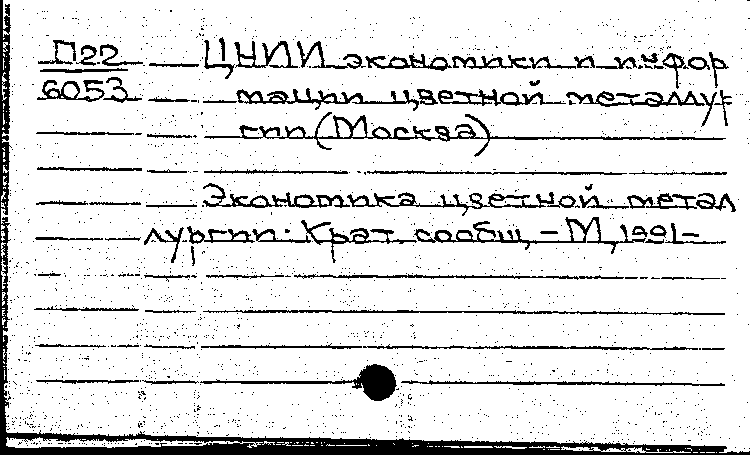 П22 ЦНИИ экономики и инфор
6053 мации цветной металлур
гии (Москва)
Экономика цветной метал
лургии. Крат. сообщ. – М, 1991–